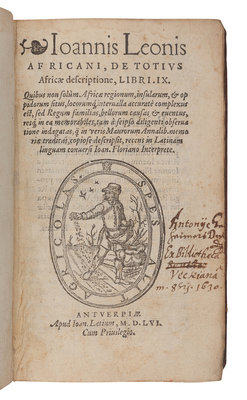 Ioannis Leonis
AFRICANI, DE TOTIVS
Africæ descriptione, LIBRI. IX.
Quibus non solùm Africæ regionum, insularum, & op
pidorum situs, locorumq́; interualla accuratè complexus
est, sed Regum familias, bellorum causas & euentus,
resq́; in ea memorabiles, tam à seipso diligenti obserua
tione indagatas, q̃ in veris Maurorum Annalib. memo
riæ traditas, copiosè descripsit, recens in Latinam
linguam conuersi Ioan. Floriano Interprete.
SPES ALIT
AGRICOLAS.
Ex Bibliotheca
1630
ANTVERPIÆ
Apud Ioan. Latium, M. D. LVI.
Cum Priuilegio.